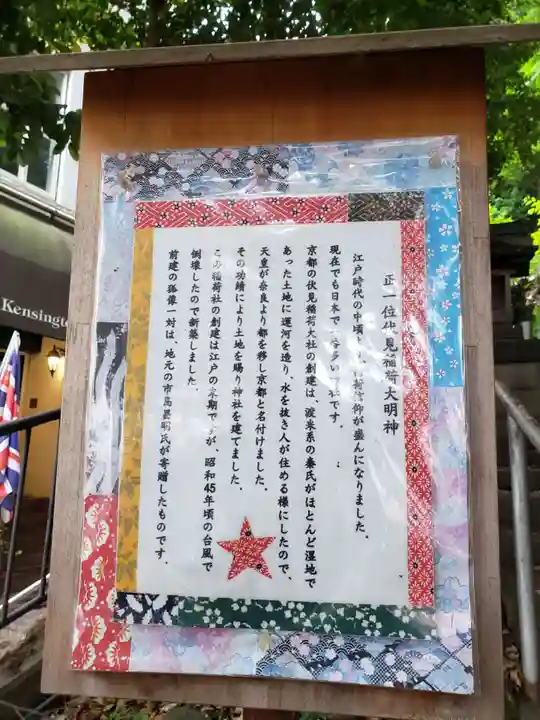 正一位伏見稲荷大明神
江戸時代の中頃と 稲荷信仰が盛んになりました。
現在でも日本で 番多い 社です。
京都の伏見稲荷大社の創建は、渡来系の秦氏がほとんど湿地で
あった土地に運河を造り、水を抜き人が住める様にしたので、
天皇が奈良より都を移し京都と名付けました。
その功績により土地を賜り神社を建てました。
この稲荷社の創建は江戸の末期ですが、昭和45年頃の台風で
倒壊したので新築しました。
前建の狐像一対は、地元の市 昭氏が寄贈したものです。
Kensingto